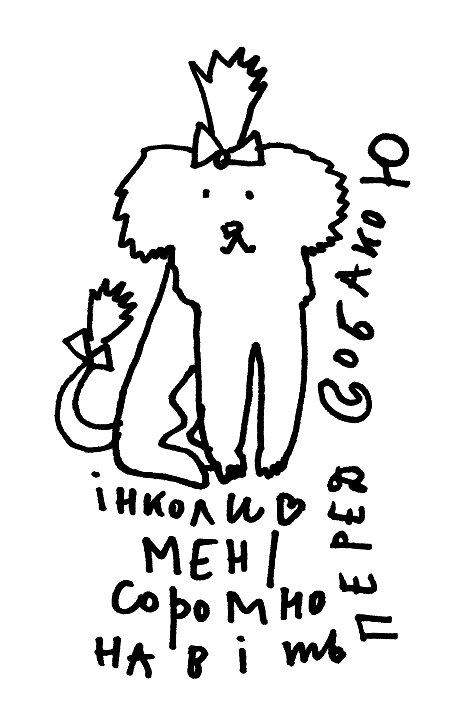 інколи
мені
соромно
навіть
перед собакою